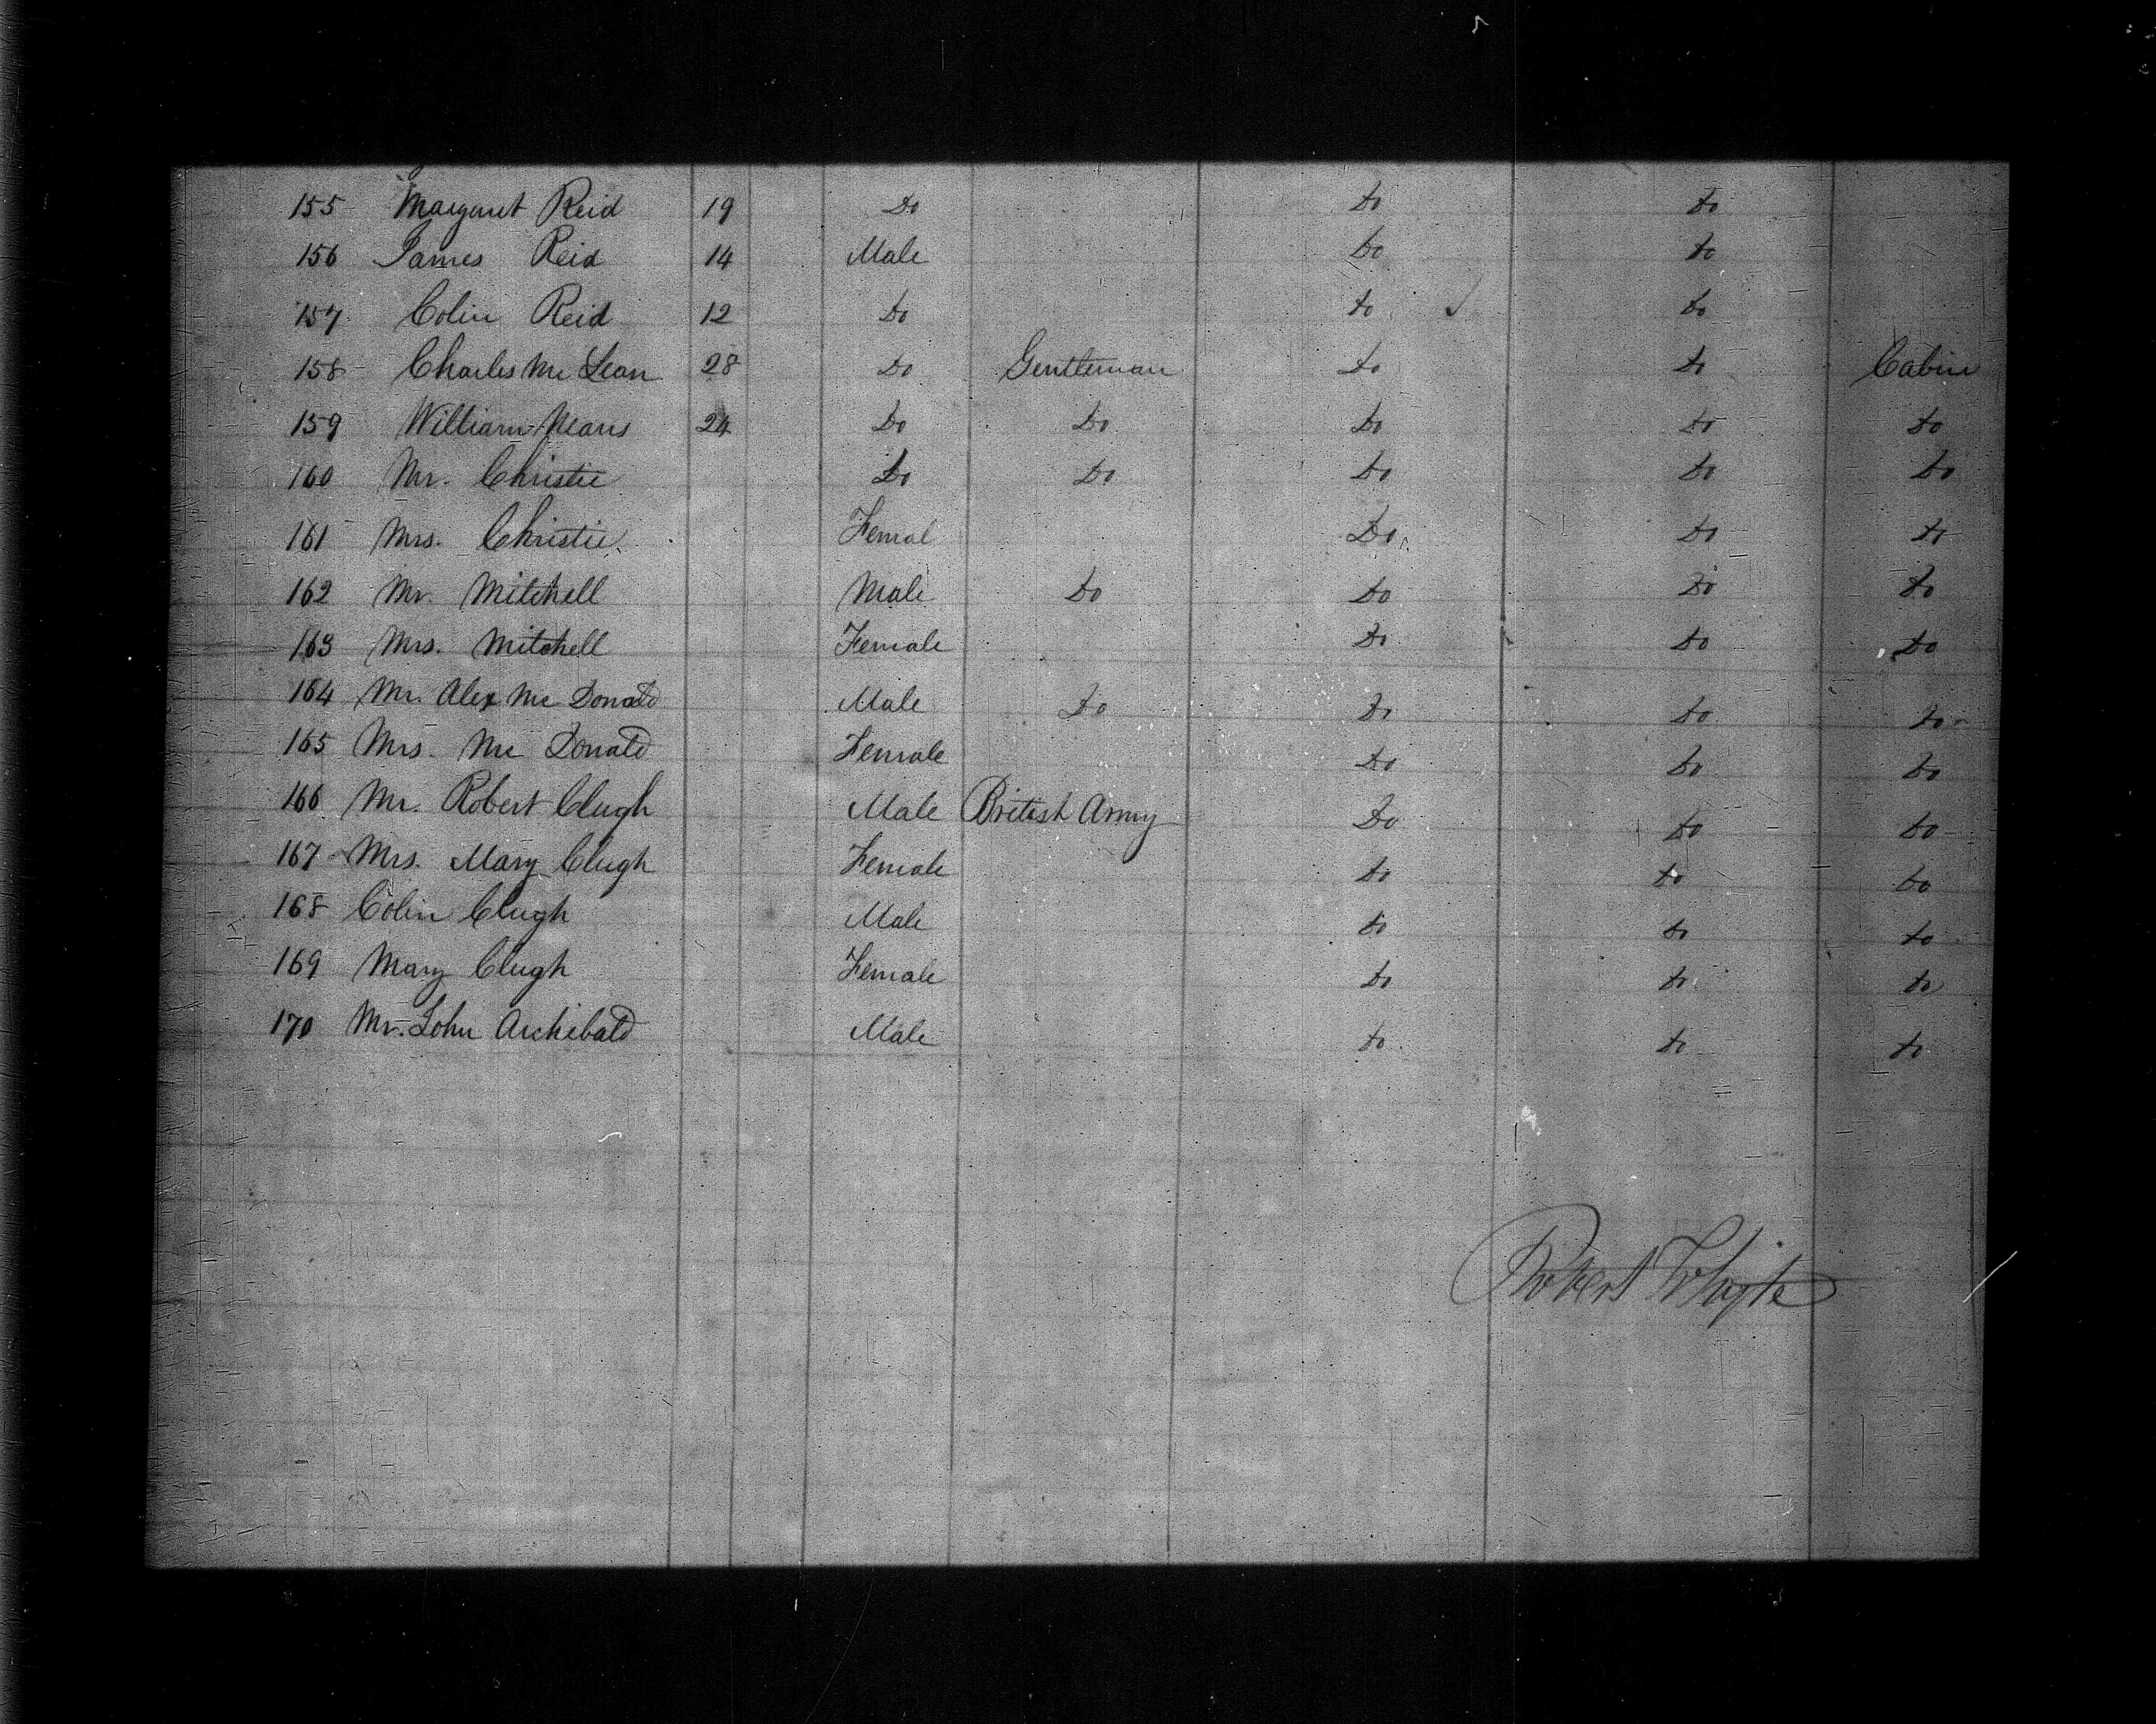 155 Margaret Reid 19 Do Do Do
156 James Reid 14 Male Do Do
157 Colin Reid 12 Do Do Do
158 Charles Mc Lean 28 Do Gentleman Do Do Cabin
159 William Means 24 Do Do Do Do Do
160 Mr. Christie Do Do Do Do Do
161 Mrs. Christie Femal Do Do Do
162 Mr. Mitchell Male Do Do Do Do
163 Mrs. Mitchell Female Do Do Do
164 Mr. Alex Mc Donald Male Do Do Do Do
165 Mrs. Mc Donald Female Do Do Do
166 Mr. Robert Clugh Male British Army Do Do Do
167 Mrs. Mary Clugh Female Do Do Do
168 Colin Clugh Male Do Do Do
169 Mary Clugh Female Do Do Do
170 Mr. John Archibald Male Do Do Do
Robert Whyte